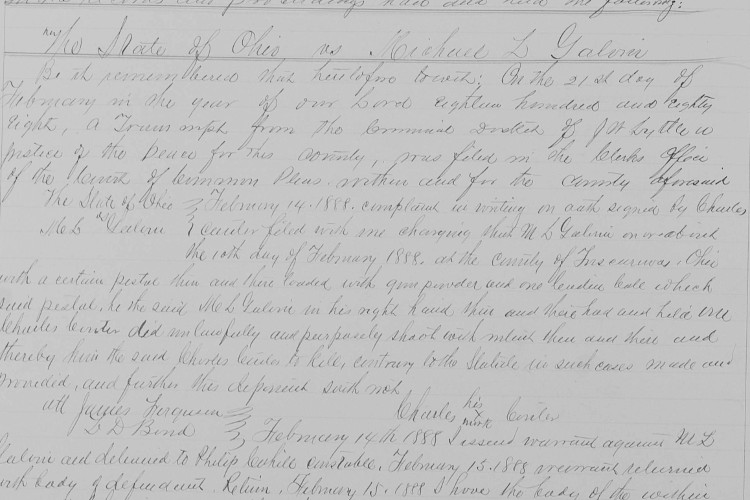 and held the following:
The State of Ohio vs Michael L Galvin
Be it remembered that heretofore towit; On the 21st day of
February in the year of our Lord eighteen hundred and eighty
eight, a Transcript from the Criminal Docket of J W Lyttle a
Justice of the Peace for this county, was filed in the Clerks office
of the Court of Common Pleas within and for the county aforesaid
The State of Ohio February 14. 1888. complaint in writing on oath signed by Charles
vs M L Galvin filed with me charging that M L Galvin on or about
the 10th day of February 1888. at the county of Tuscarawas, Ohio
with a certain pistol then and there loaded with gunpowder and one leaden ball which
said pistol, he the said M L Galvin in his right hand then and there had and held
Charles did unlawfully and purposely shoot with intent then and there and
thereby him the said Charles to kill, contrary to the Statute in such cases made and
Provided, and further this deponent saith not
James Ferguson Charles his mark
D Bond February 14th 1888 I issued warrant against M L
Galvin and delivered to Philip constable. February 15. 1888 warrant returned
with body of defendant. Return, February 15. 1888 I have the body of the within